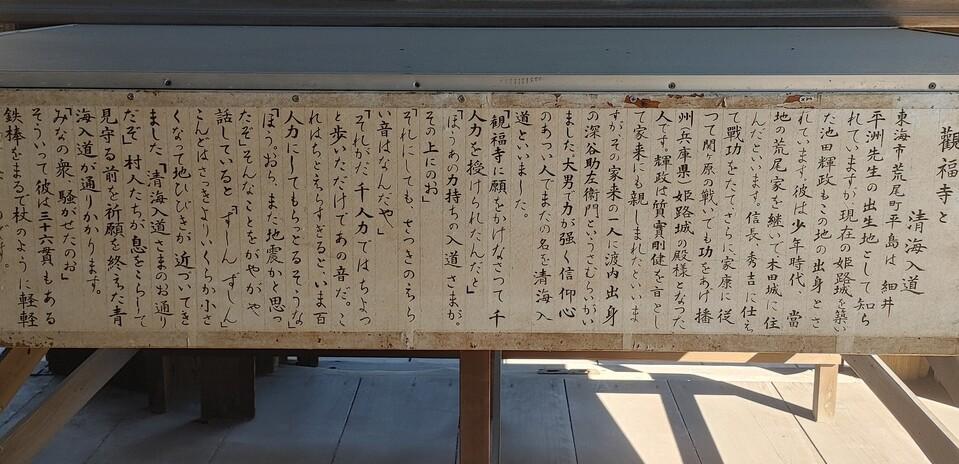 觀福寺と
清海入道
東海市荒尾町平島は 細井
平洲先生の出生地として知ら
れていますが、現在の姫路城を築い
た池田輝政もこの地の出身とさ
れています。彼は少年時代、当
地の荒尾家を継いで木田城に住
んだといます。信長、秀吉に仕え
て戦功をたて、さらに家康に従
って関ヶ原の戦いでも功をあげ播
州(兵庫県)姫路城の殿様となった
人です。輝政は質実剛健を旨とし
て家来にも親しまれたといいま
すが、その家来の一人に渡内出身
の深谷助左衛門というさむらいがい
ました。大男で力が強く信仰心
のあつい人でまたの名を清海入
道といいました。
「観福寺に願をかけなさって千
人力を授けられたんだと」
「ほうあの力持ちの入道さまが。
その上にのお」
「それにしても、さっきのぢら
い音はなんだや」
「それがだ 千人力ではちょっ
と歩いただけであの音だ。こ
れはちとえらすぎると、いま百
人力にしてもらっとるそうな」
「ほう。おら、また地震かと思っ
たぞ」そんなことをがやがや
話していると 「ずしん ずしん」
こんどはさっきよりいくらか小さ
くなって地ひびきが近づいてき
ました。「清海入道さまのお通り
だぞ」村人たちが息をこらして
見守る前を祈願を終えた青
海入道が通りかかります。
「みなの衆、騒がせたのお」
そういって彼は三十六貫もある
鉄棒をまるで杖のように軽軽